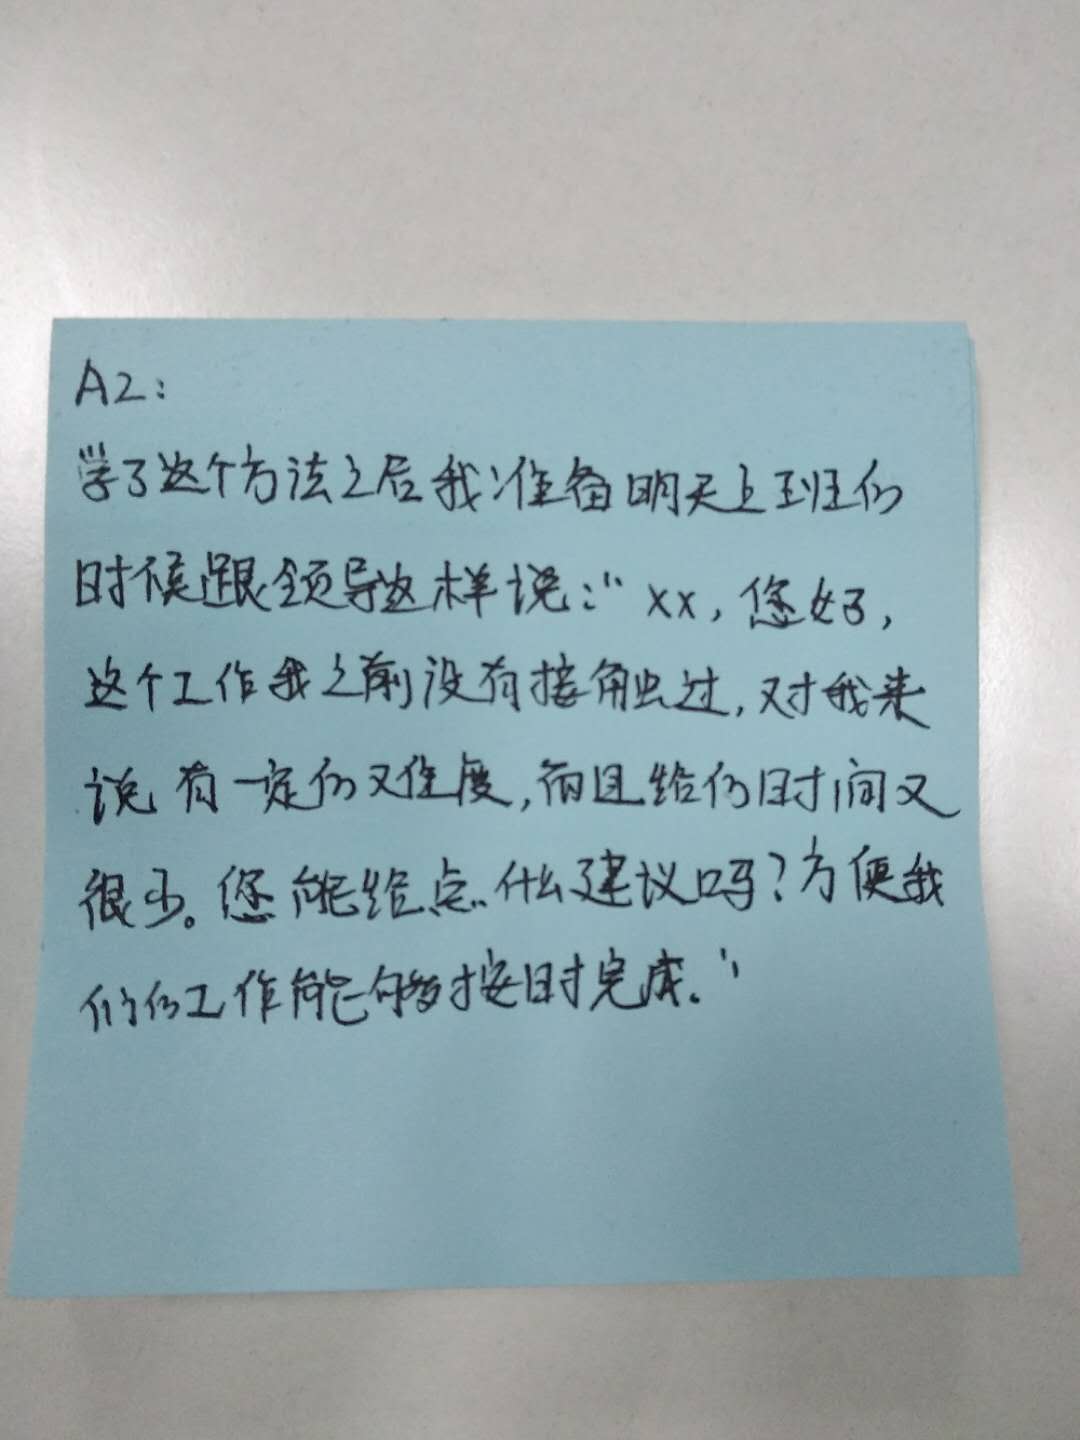 A2:
学了这个方法之后我准备明天上班的
时候跟领导这样说:"xx,您好,
这个工作我之前没有接触过,对我来
说有一定的难度,而且给的时间又
很少。您能给点什么建议吗?方便我
们的工作能够按时完成。"